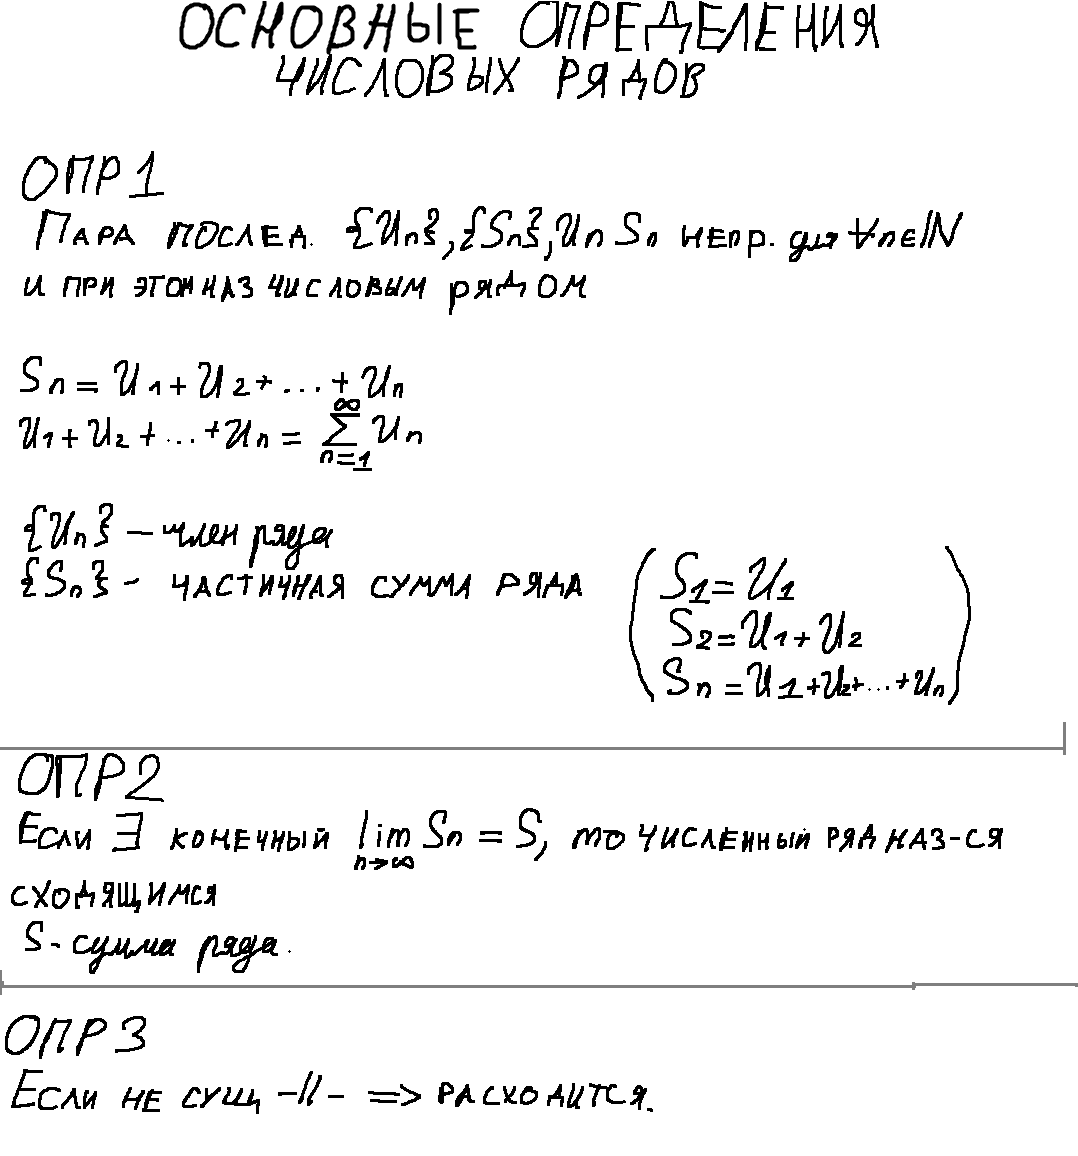 ОСНОВНЫЕ ОПРЕДЕЛЕНИЯ
ЧИСЛОВЫХ РЯДОВ
ОПР1
ПАРА ПОСЛЕД. {Uₙ},{Sₙ},Uₙ Sₙ НЕПР. для ∀n∈ℕ
И ПРИ ЭТОМ НАЗ ЧИСЛОВЫМ РЯДОМ
Sₙ = U₁ + U₂ + ... + Uₙ
U₁ + U₂ + ... + Uₙ = ∑ₙ₌₁^∞ Uₙ
{Uₙ} – член ряда
{Sₙ} - ЧАСТИЧНАЯ СУММА РЯДА
(S₁ = U₁
S₂ = U₁ + U₂
Sₙ = U₁ + U₂ + ... + Uₙ)
ОПР2
ЕСЛИ ∃ КОНЕЧНЫЙ lim n→∞ Sₙ = S, ТО ЧИСЛЕННЫЙ РЯД НАЗ-СЯ
СХОДЯЩИМСЯ
S - сумма ряда.
ОПР3
ЕСЛИ НЕ СУЩ -//- => РАСХОДИТСЯ.